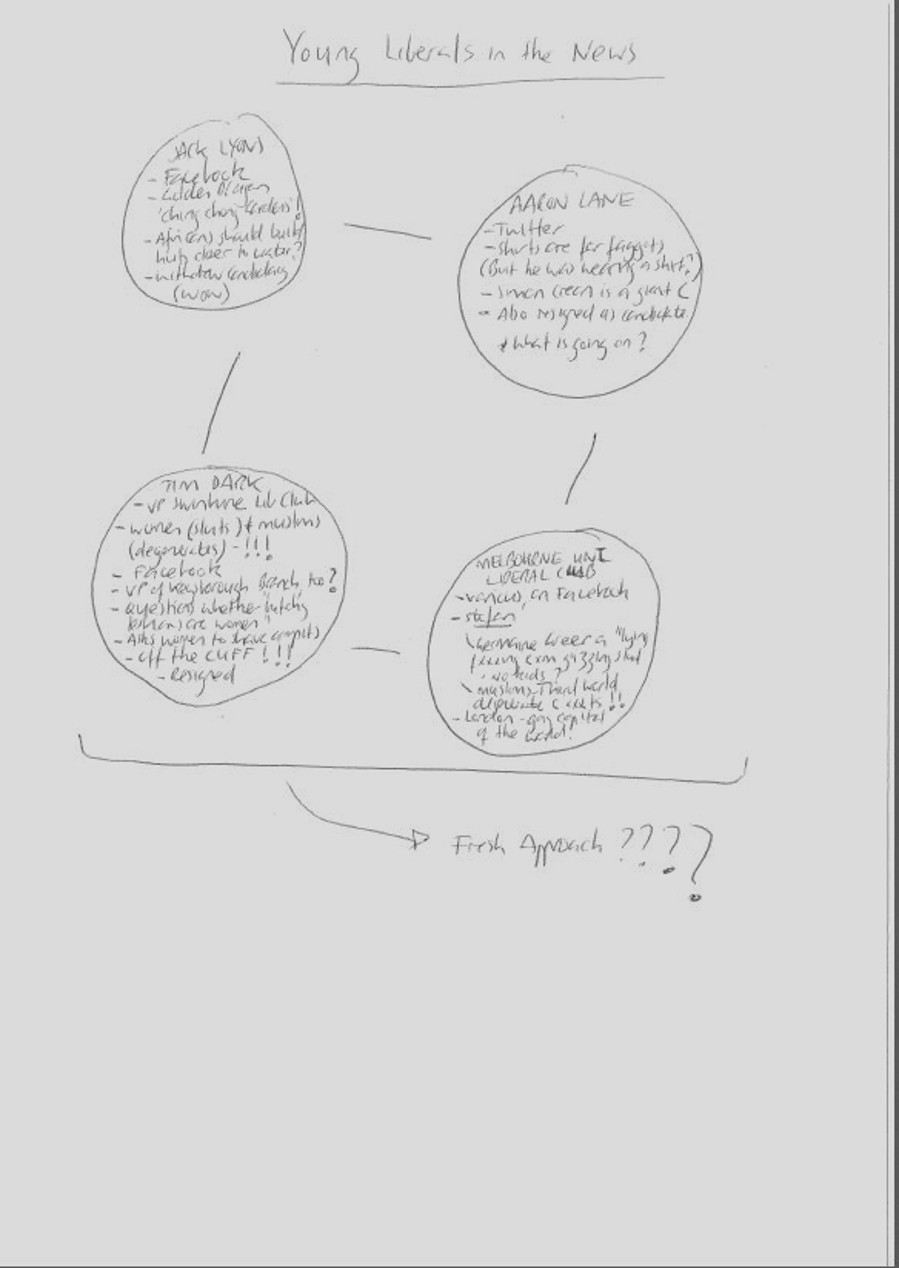 Young Liberals in the News
JACK LYONS
- Facebook
- Golden Dragon
'ching chong gardens'!
- Africans should build
huts closer to water?
- withdrew candidacy
(wow)
AARON LANE
- Twitter
- shirts are for faggots
(But he was wearing a shirt?)
- Simon Crean is a giant C
- Also resigned as candidate.
* What is going on?
TIM DARK
- VP Swinburne Lib Club
- women (sluts) & muslims
(degenerates) - !!!
- Facebook
- VP of Branch, too?
- question whether "butchy
lesbians are women"
- Asks women to shave armpits
- off the CUFF!!!
- Resigned
MELBOURNE UNI
LIBERAL CLUB
- various, on Facebook
- stefan
\ Germaine Greer a "lying
guzzling slut
- no kids?
\ muslims - Third world
degenerate !!
- London - gay capital
of the world!
Fresh Approach ????